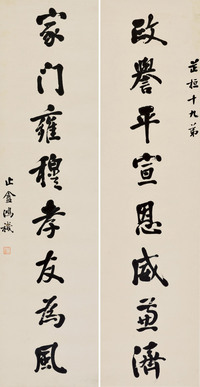 十九弟
政譽平宣恩威兼濟
家门雍穆孝友為風
止盦鴻禨